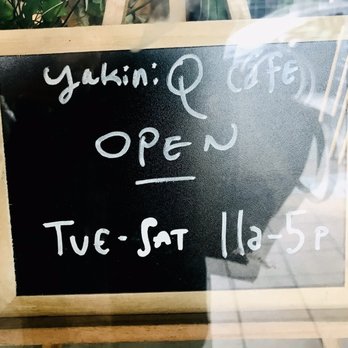 yakini Q CAFE
OPEN
TUE - SAT 11a-5p